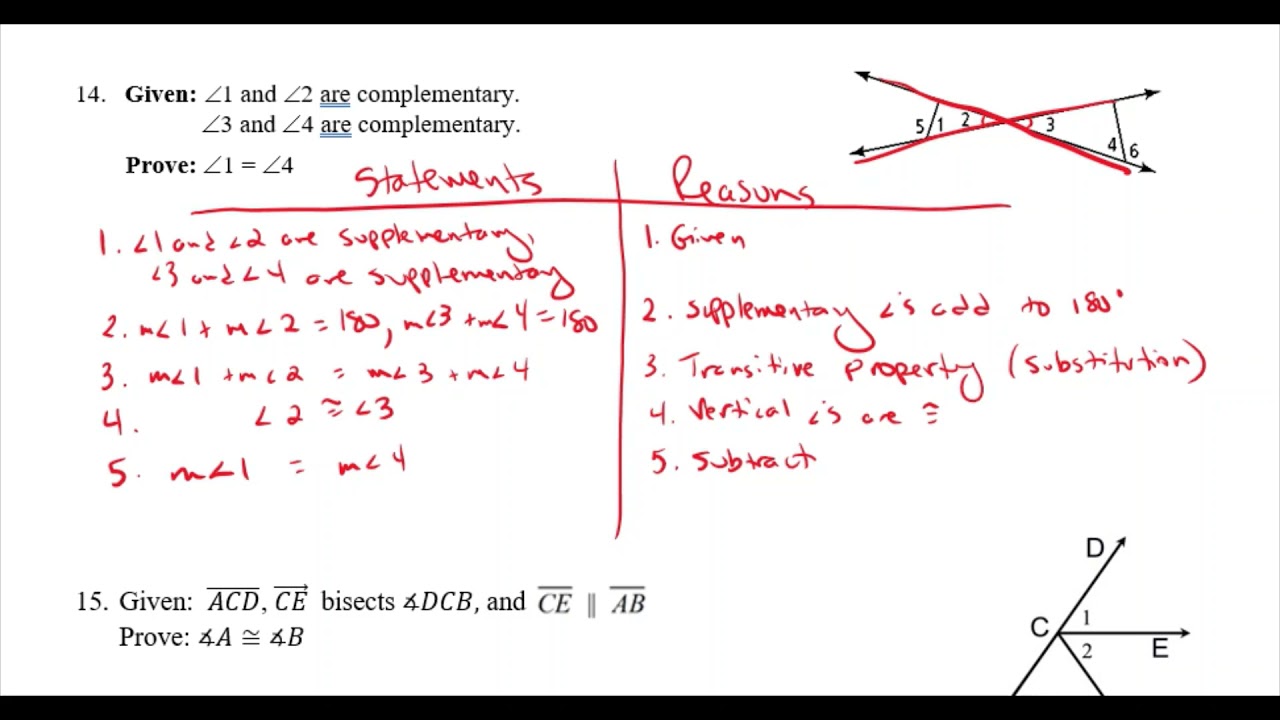 14. Given: ∠1 and ∠2 are complementary.
∠3 and ∠4 are complementary.
Prove: ∠1 = ∠4
5 1 2 3 4 6
Statements Reasons
1. ∠1 and ∠2 are supplementary, 1. Given
∠3 and ∠4 are supplementary
2. m∠1 + m∠2 = 180, m∠3 + m∠4 = 180 2. Supplementary ∠'s add to 180°
3. m∠1 + m∠2 = m∠3 + m∠4 3. Transitive Property (substitution)
4. ∠2 ≅ ∠3 4. Vertical ∠'s are ≅
5. m∠1 = m∠4 5. Subtract
15. Given: ACD, CE bisects ∡DCB, and CE ∥ AB
Prove: ∡A ≅ ∡B
D
C 1
2 E